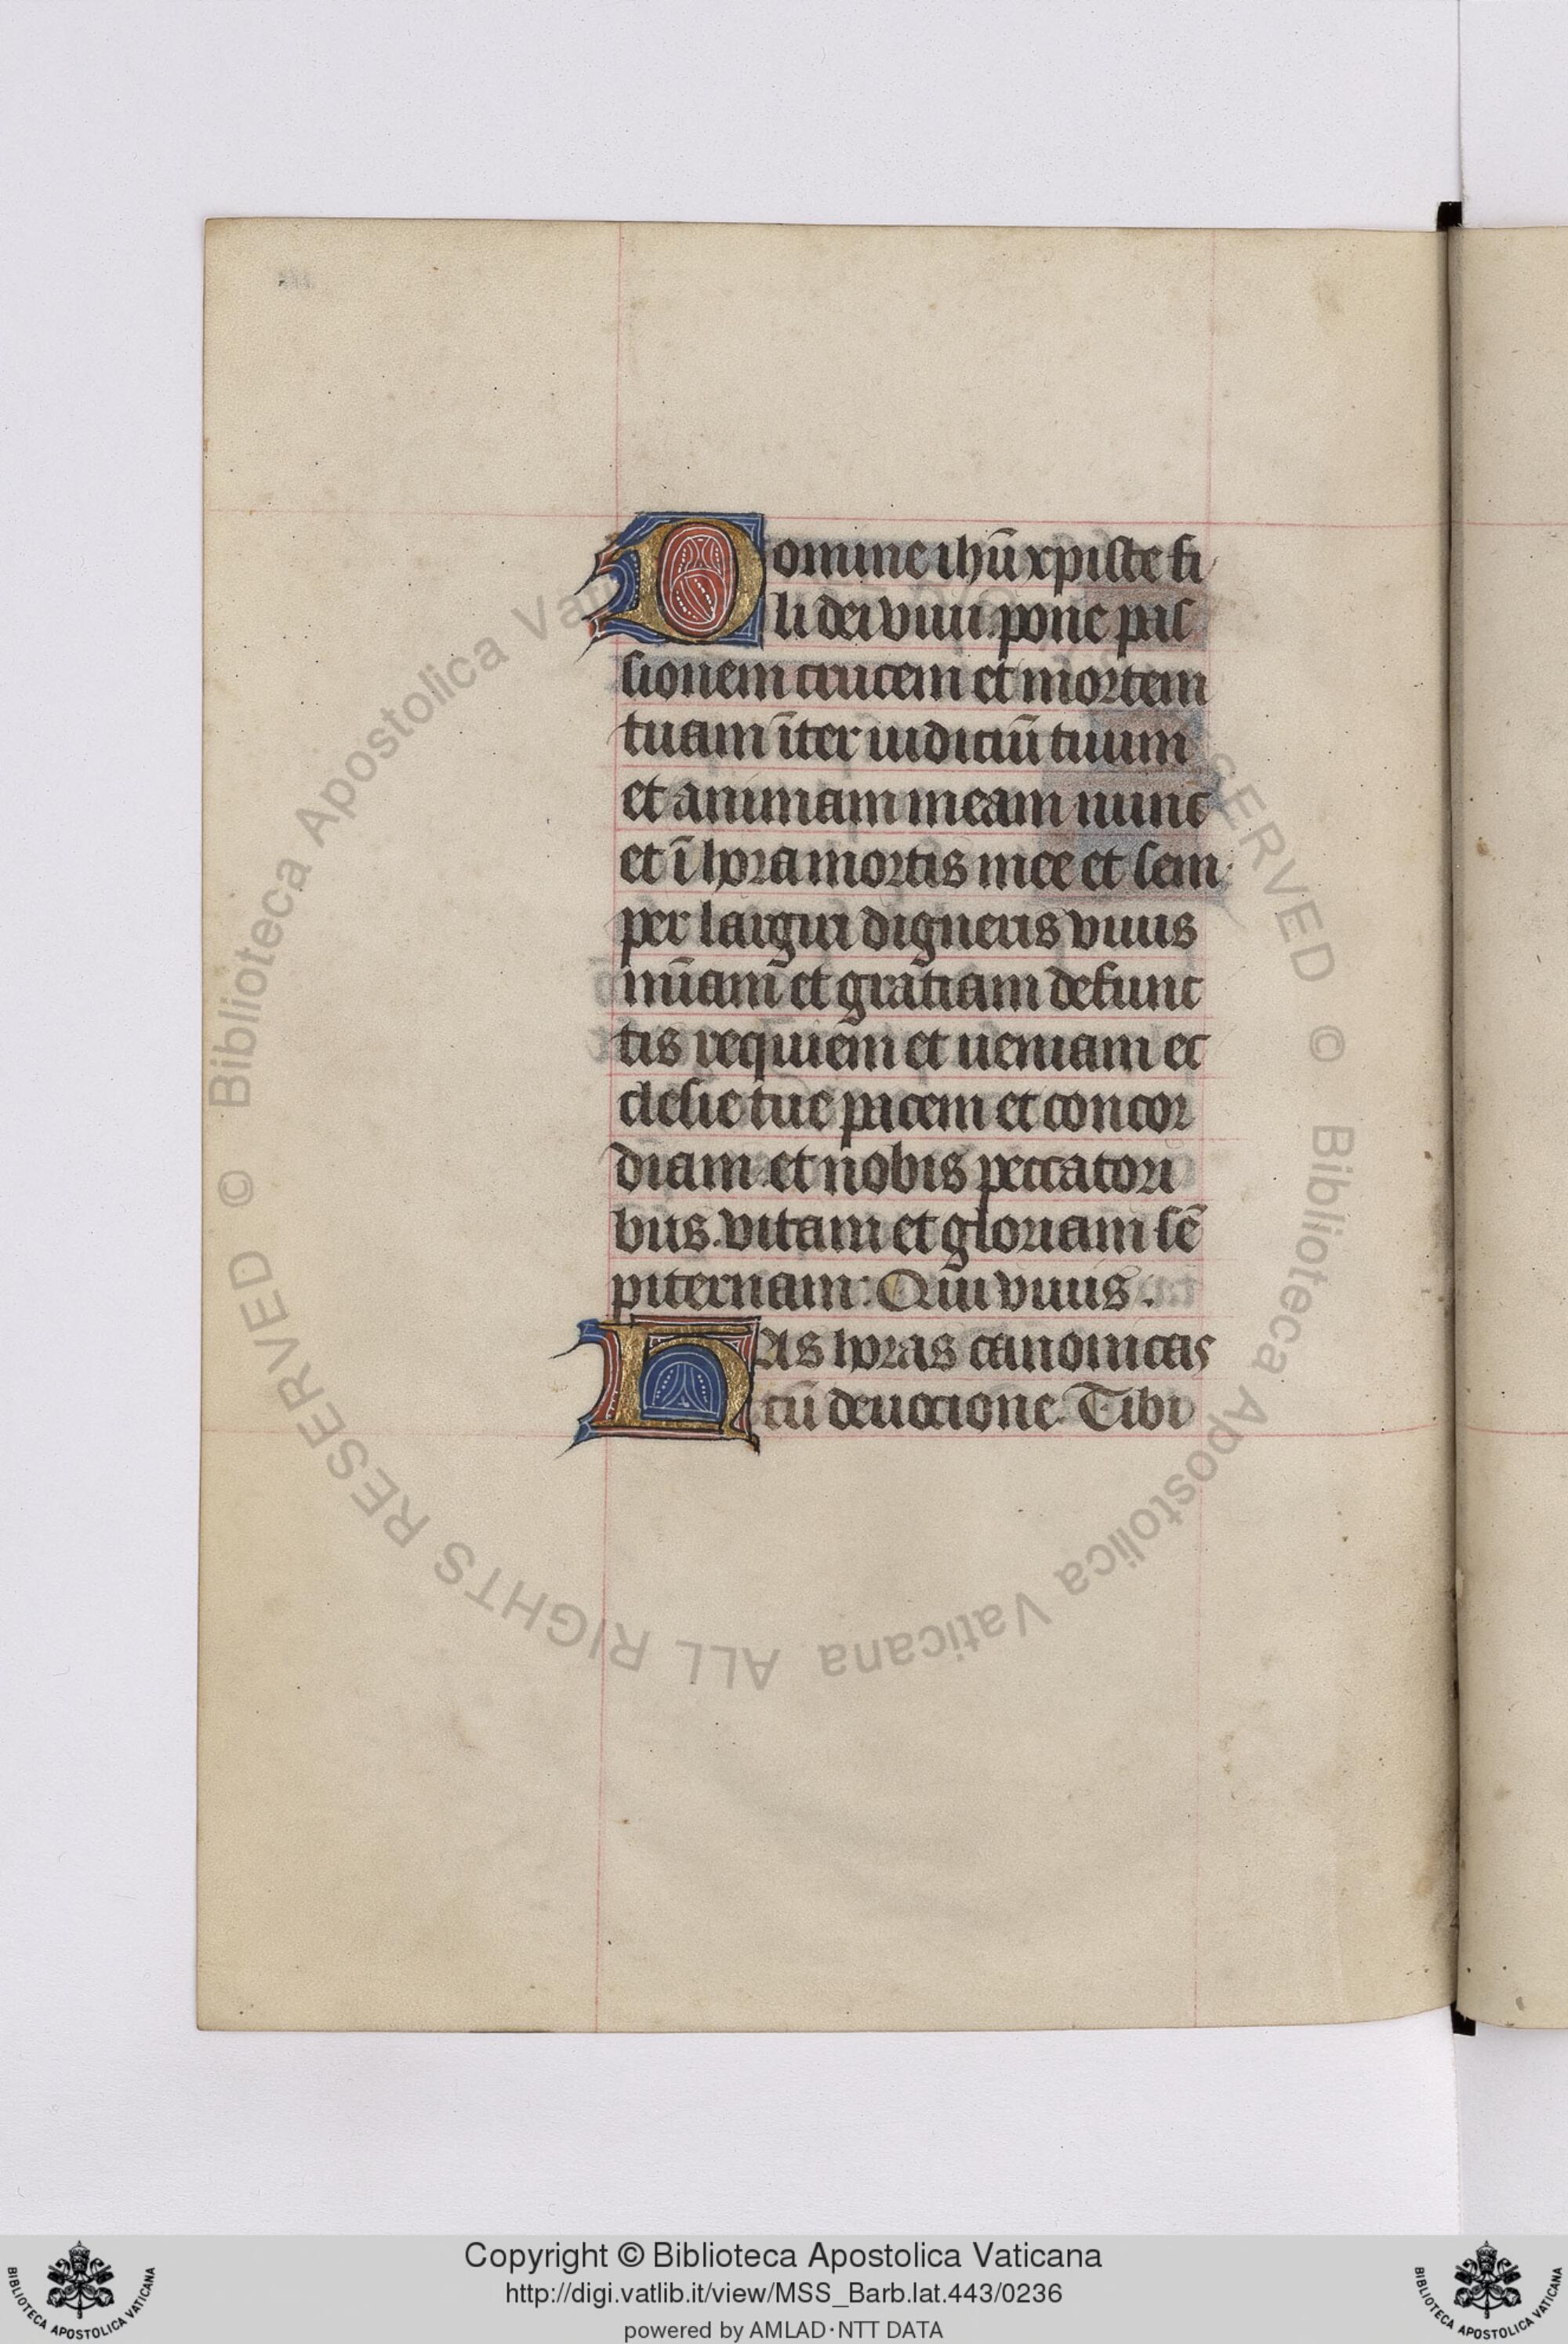 Domine ihū xpiste fi
li dei viui. pone pas
sionem crucem et mortem
tuam īter iudiciū tuum
et animam meam nunc
et ī hora mortis mee et sem
per largiri digneris viuis
mīam et gratiam defunc
tis requiem et ueniam ec
clesie tue pacem et concor
diam et nobis peccatori
bus. vitam et gloriam sē
piternam: Qui viuis.
Has horas canonicas
cū deuocione. Tibi
© Biblioteca Apostolica Vaticana ALL RIGHTS RESERVED © Biblioteca Apostolica Vat
SERVED
Copyright © Biblioteca Apostolica Vaticana
http://digi.vatlib.it/view/MSS_Barb.lat.443/0236
powered by AMLAD·NTT DATA
BIBLIOTECA APOSTOLICA VATICANA
BIBLIOTECA APOSTOLICA VATICANA